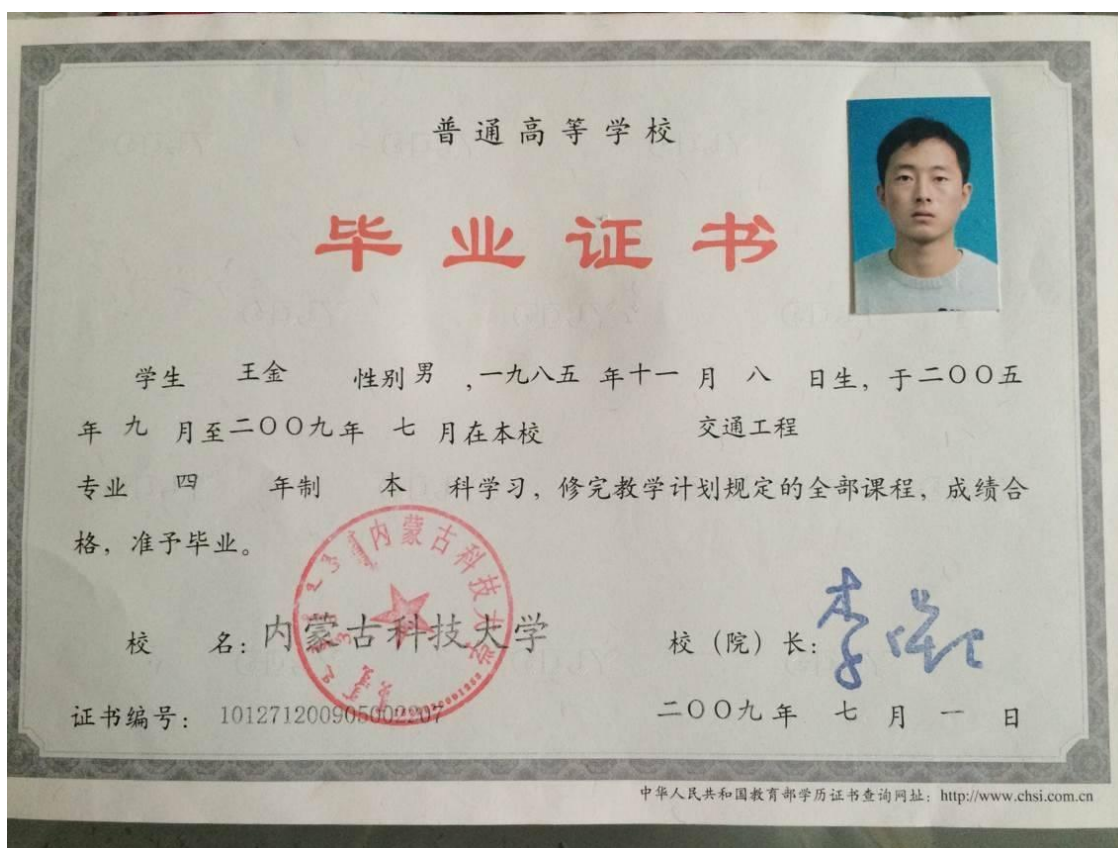 普通高等学校
毕业证书
学生 王金 性别 男 ,一九八五 年十一 月 八 日生，于二〇〇五
年 九 月至二〇〇九年 七 月在本校 交通工程
专业 四 年制 本 科学习，修完教学计划规定的全部课程，成绩合
格，准予毕业。
内蒙古科技大学
校 名：内蒙古科技大学 校（院）长：
证书编号： 101271200905002207 二〇〇九年 七 月 一 日
中华人民共和国教育部学历证书查询网址：http://www.chsi.com.cn